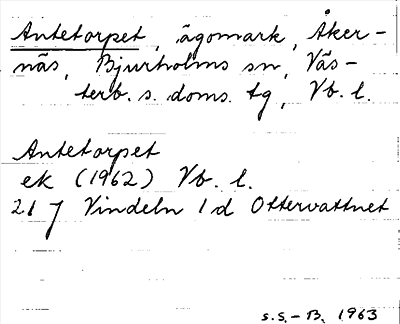 Antetorpet, ägomark, Åker-
näs, Bjurholms sn, Väs-
terb. s. doms. tg, Vb. l.
Antetorpet
ek (1962) Vb. l.
21 J Vindeln 1 d Ottervattnet
S.S.-B. 1963